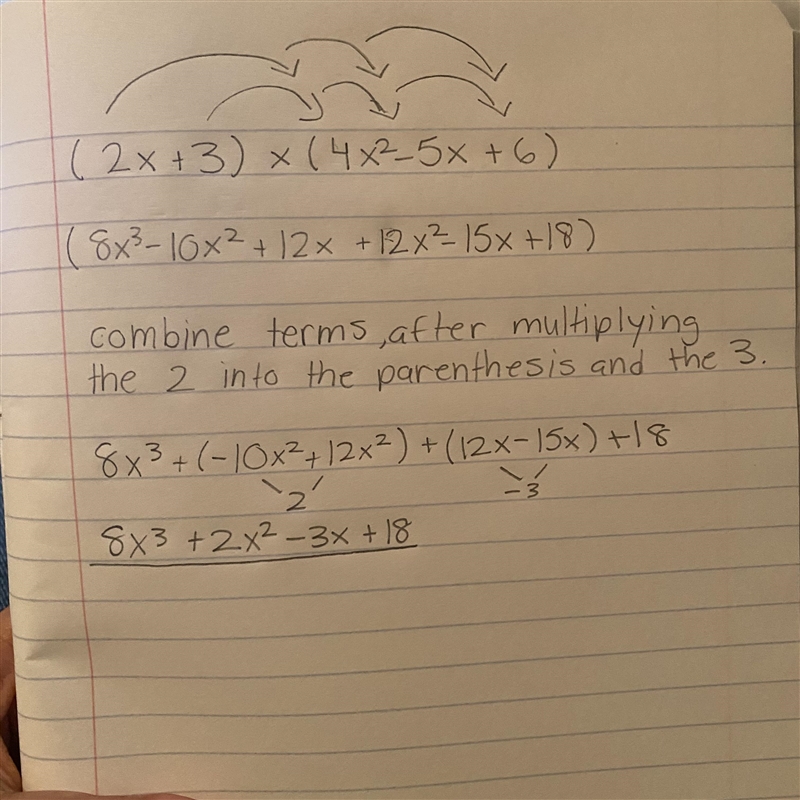 (2x+3) × (4x²-5x+6)
(8x³-10x²+12x+12x²-15x+18)
combine terms, after multiplying
the 2 into the parenthesis and the 3.
8x³+(-10x²+12x²)+(12x-15x)+18
2 -3
8x³+2x²-3x+18